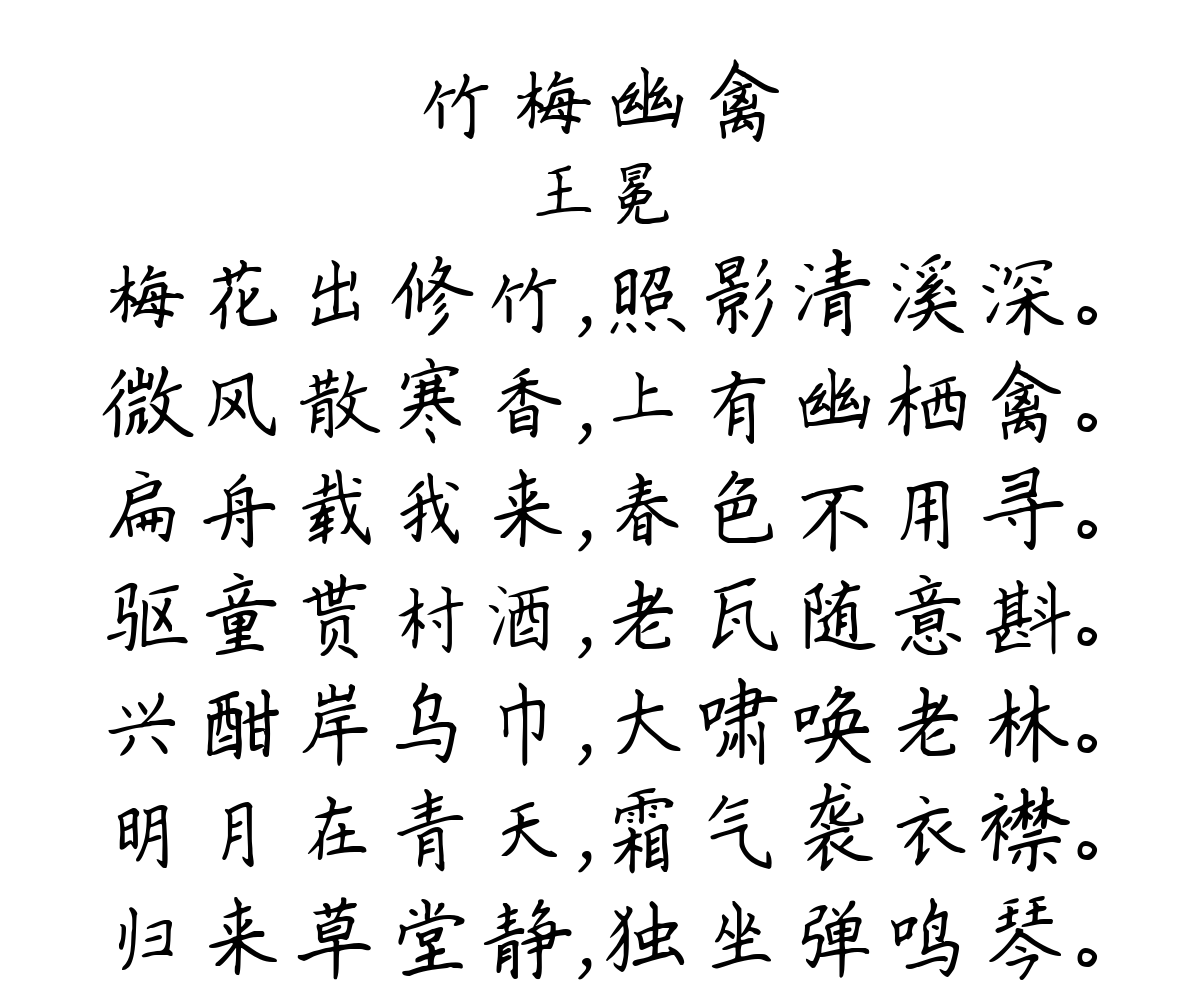 竹梅幽禽
王冕
梅花出修竹,照影清溪深。
微风散寒香,上有幽栖禽。
扁舟载我来,春色不用寻。
驱童贳村酒,老瓦随意斟。
兴酣岸乌巾,大啸唤老林。
明月在青天,霜气袭衣襟。
归来草堂静,独坐弹鸣琴。